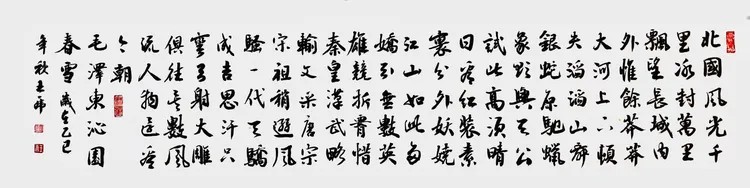 北國風光千
里冰封萬里
飄望長城內
外惟餘莽莽
大河上下頓
失滔滔山舞
銀蛇原馳蠟
象欲與天公
試比高須晴
日看紅裝素
裹分外妖嬈
江山如此多
嬌引無數英
雄競折腰惜
秦皇漢武略
輸文采唐宗
宋祖稍遜風
騷一代天驕
成吉思汗只
彎弓射大雕
俱往矣數風
流人物還看
今朝
毛澤東沁園
春雪 歲在乙巳
年秋